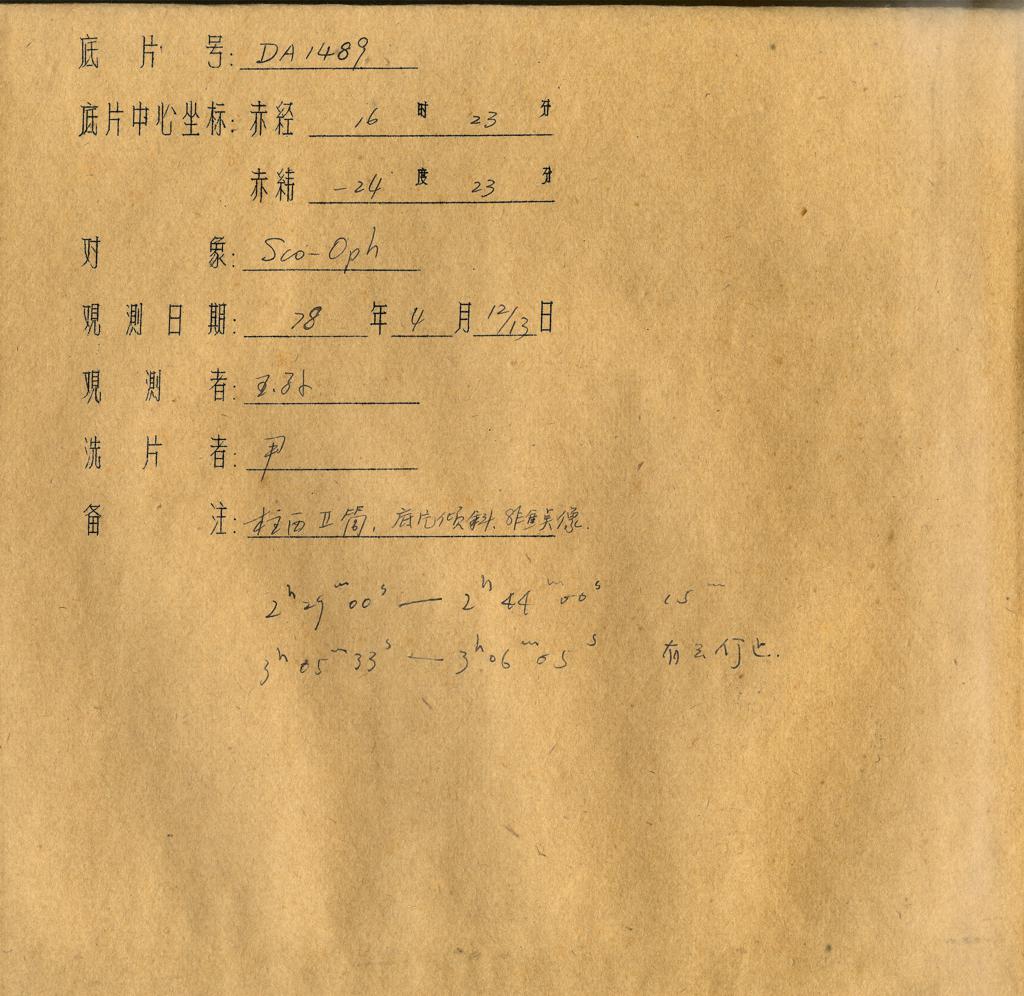 底片号: DA1489
底片中心坐标: 赤经 16 时 23 分
赤緯 -24 度 23 分
对象: Sco-Oph
覌測日期: 78 年 4 月 12/13 日
覌測者: 王.孙
洗片者: 尹
备注: 柱西 II 筒, 底片倾斜.
2ʰ29ᵐ00ˢ — 2ʰ44ᵐ00ˢ 15ᵐ
3ʰ05ᵐ33ˢ — 3ʰ06ᵐ05ˢ 有云停止.